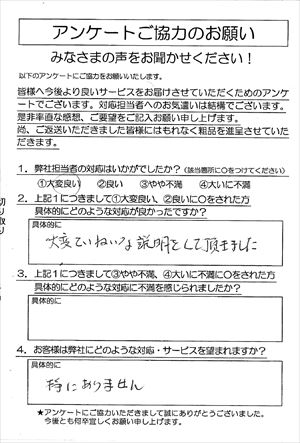 アンケートご協力のお願い
みなさまの声をお聞かせください！
以下のアンケートにご協力をお願いいたします。
皆様へ今後より良いサービスをお届けさせていただくためのアンケ
ートでございます。対応担当者へのお気遣いは結構でございます。
是非率直な感想、ご要望をご記入お願い申し上げます。
尚、ご返送いただきました皆様にはもれなく粗品を進呈させていた
だきます。
1．弊社担当者の対応はいかがでしたか？（該当箇所に○をつけてください）
①大変良い ②良い ③やや不満 ④大いに不満
2．上記1につきまして①大変良い、②良いに○をされた方
具体的にどのような対応が良かったですか？
具体的に
大変ていねいな説明をして頂ました
3．上記1につきまして③やや不満、④大いに不満に○をされた方
具体的にどのような対応に不満を感じられましたか？
具体的に
4．お客様は弊社にどのような対応・サービスを望まれますか？
具体的に
特にありません
★アンケートにご協力いただきまして誠にありがとうございました。
今後とも何卒宜しくお願い申し上げます。
切り取り